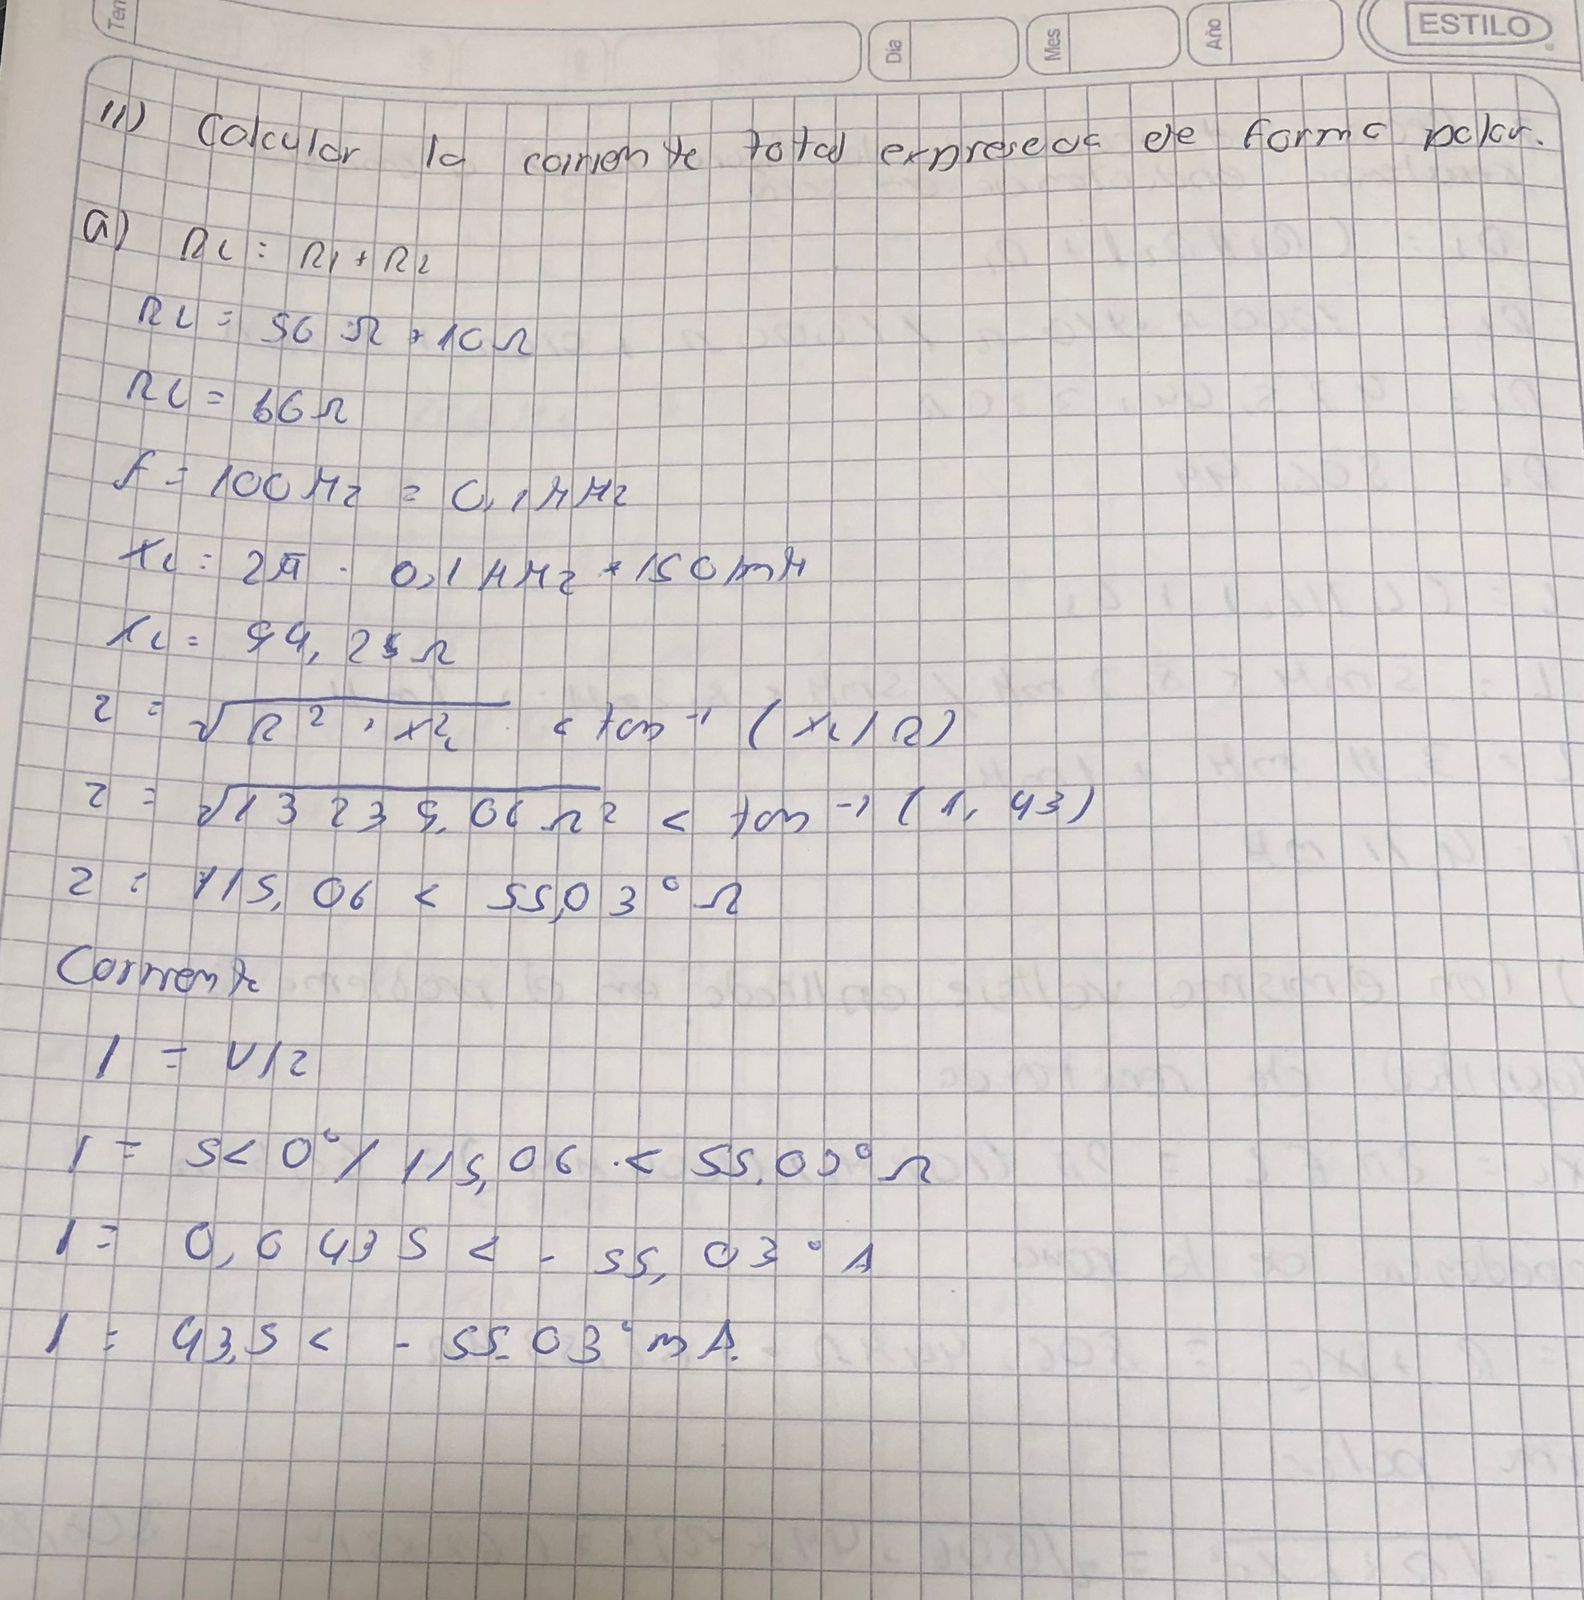 Ten
Día
Mes
Año
ESTILO
11) Calcular la corriente total expresada de forma polar.
a) RL = R1 + R2
RL = 56 Ω + 10 Ω
RL = 66 Ω
f = 100 Hz = 0,1 KHz
XL = 2π · 0,1 KHz * 150 mH
XL = 94,25 Ω
Z = √R² + XL² < tan⁻¹ (XL/R)
Z = √13239,06 Ω² < tan⁻¹ (1,43)
Z = 115,06 < 55,03° Ω
Corriente
I = V/Z
I = 5<0° / 115,06 < 55,03° Ω
I = 0,0435 < - 55,03° A
I = 43,5 < - 55.03° mA.